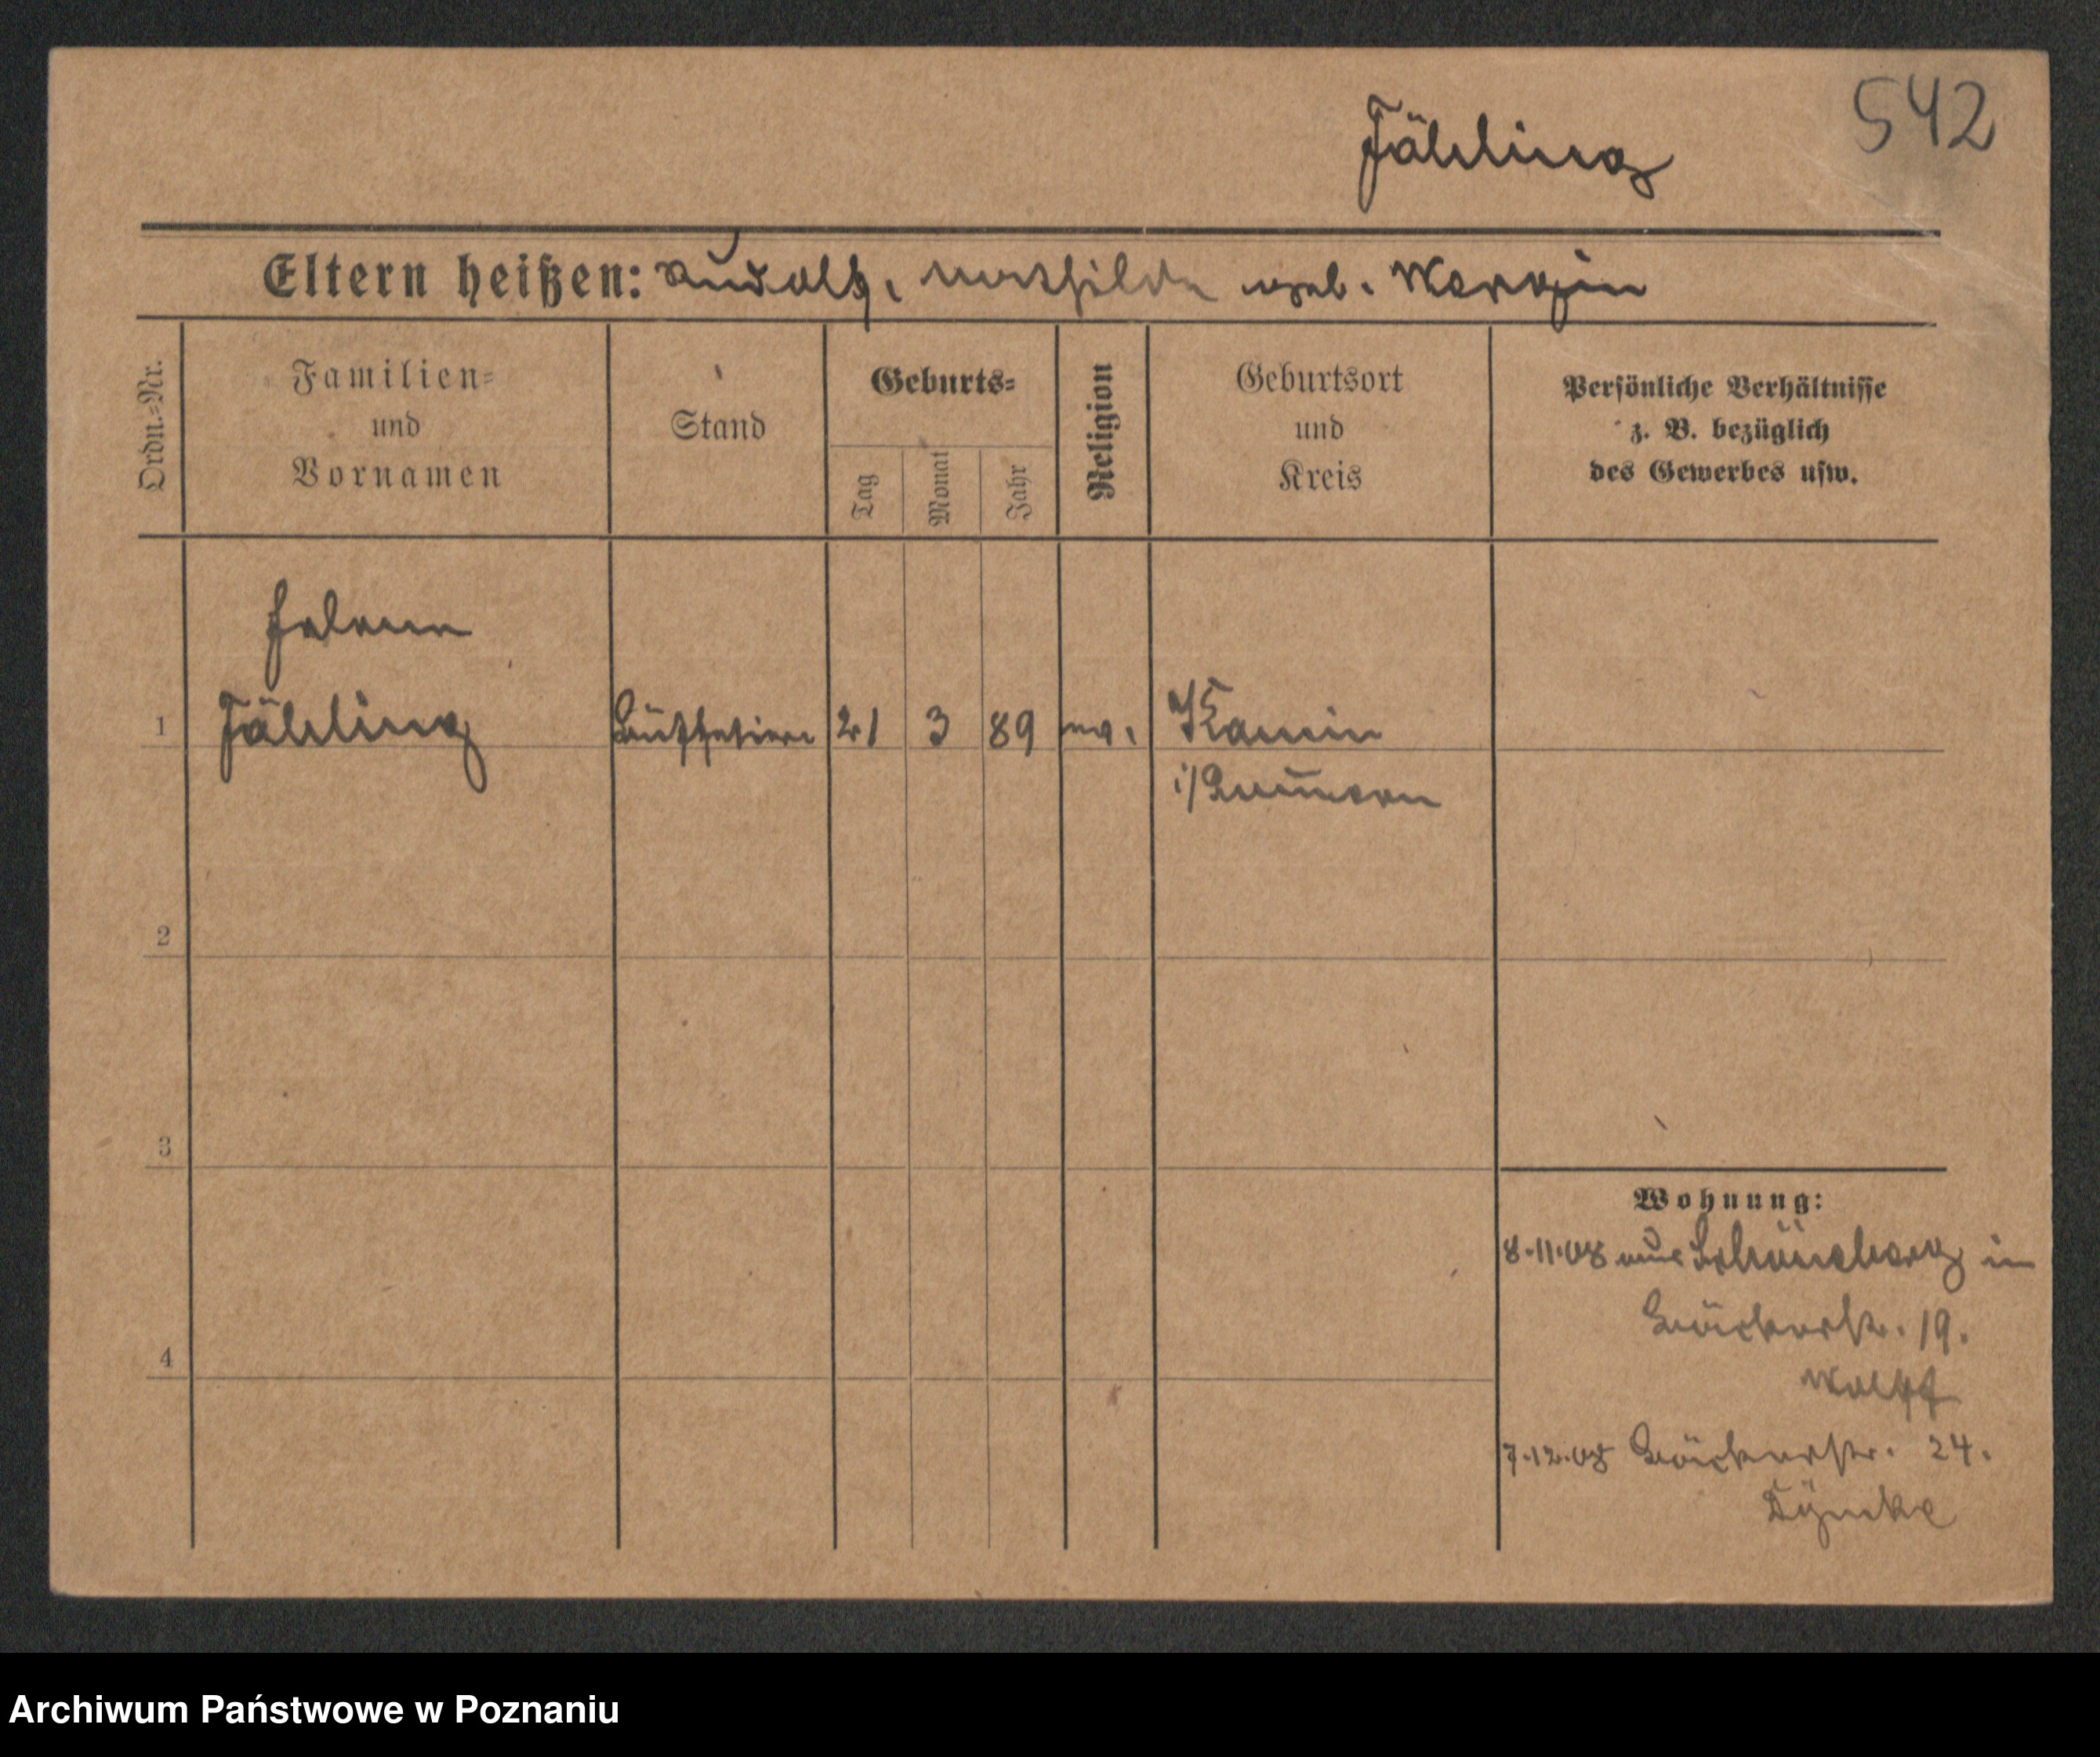 542
Jähling
Eltern heißen: Rudolf, Mathilde geb. Wergin
Ordn.=Nr.
Familien=
und
Vornamen
Stand
Geburts=
Tag
Monat
Jahr
Religion
Geburtsort
und
Kreis
Persönliche Verhältnisse
z. B. bezüglich
des Gewerbes usw.
Helene
1 Jähling 21 3 89 ev. Kamin
i/Pommern
2
3
4
Wohnung:
8.11.08 aus Schöneberg in
Bäckerstr. 19.
Wolff
7.12.08 Bäckerstr. 24.
Archiwum Państwowe w Poznaniu